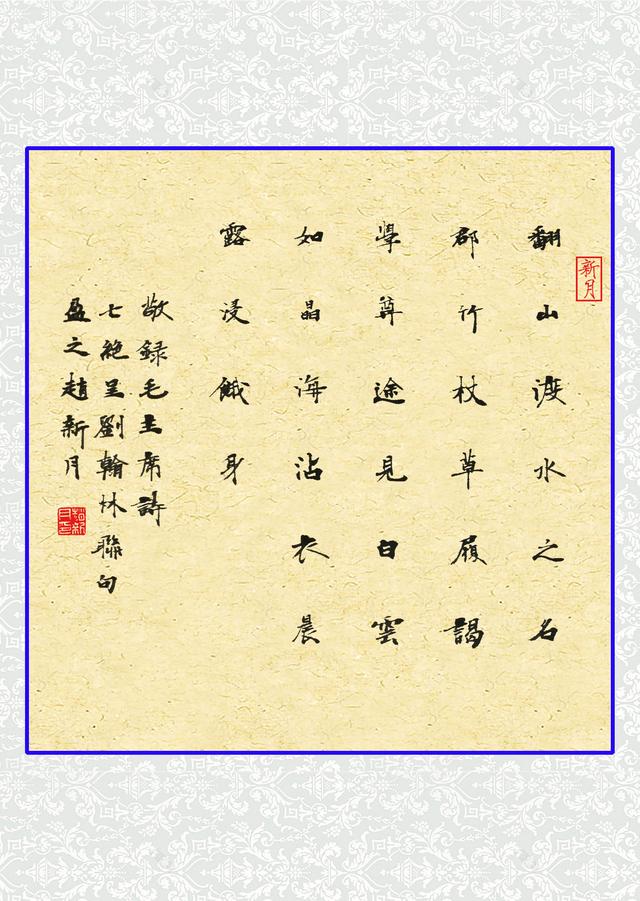 新月
翻山渡水之名
郡竹杖草履謁
學尊途見白雲
如晶海沾衣晨
露浸餓身
敬録毛主席詩
七絕呈劉翰林聯句
盈之趙新月
趙新月印